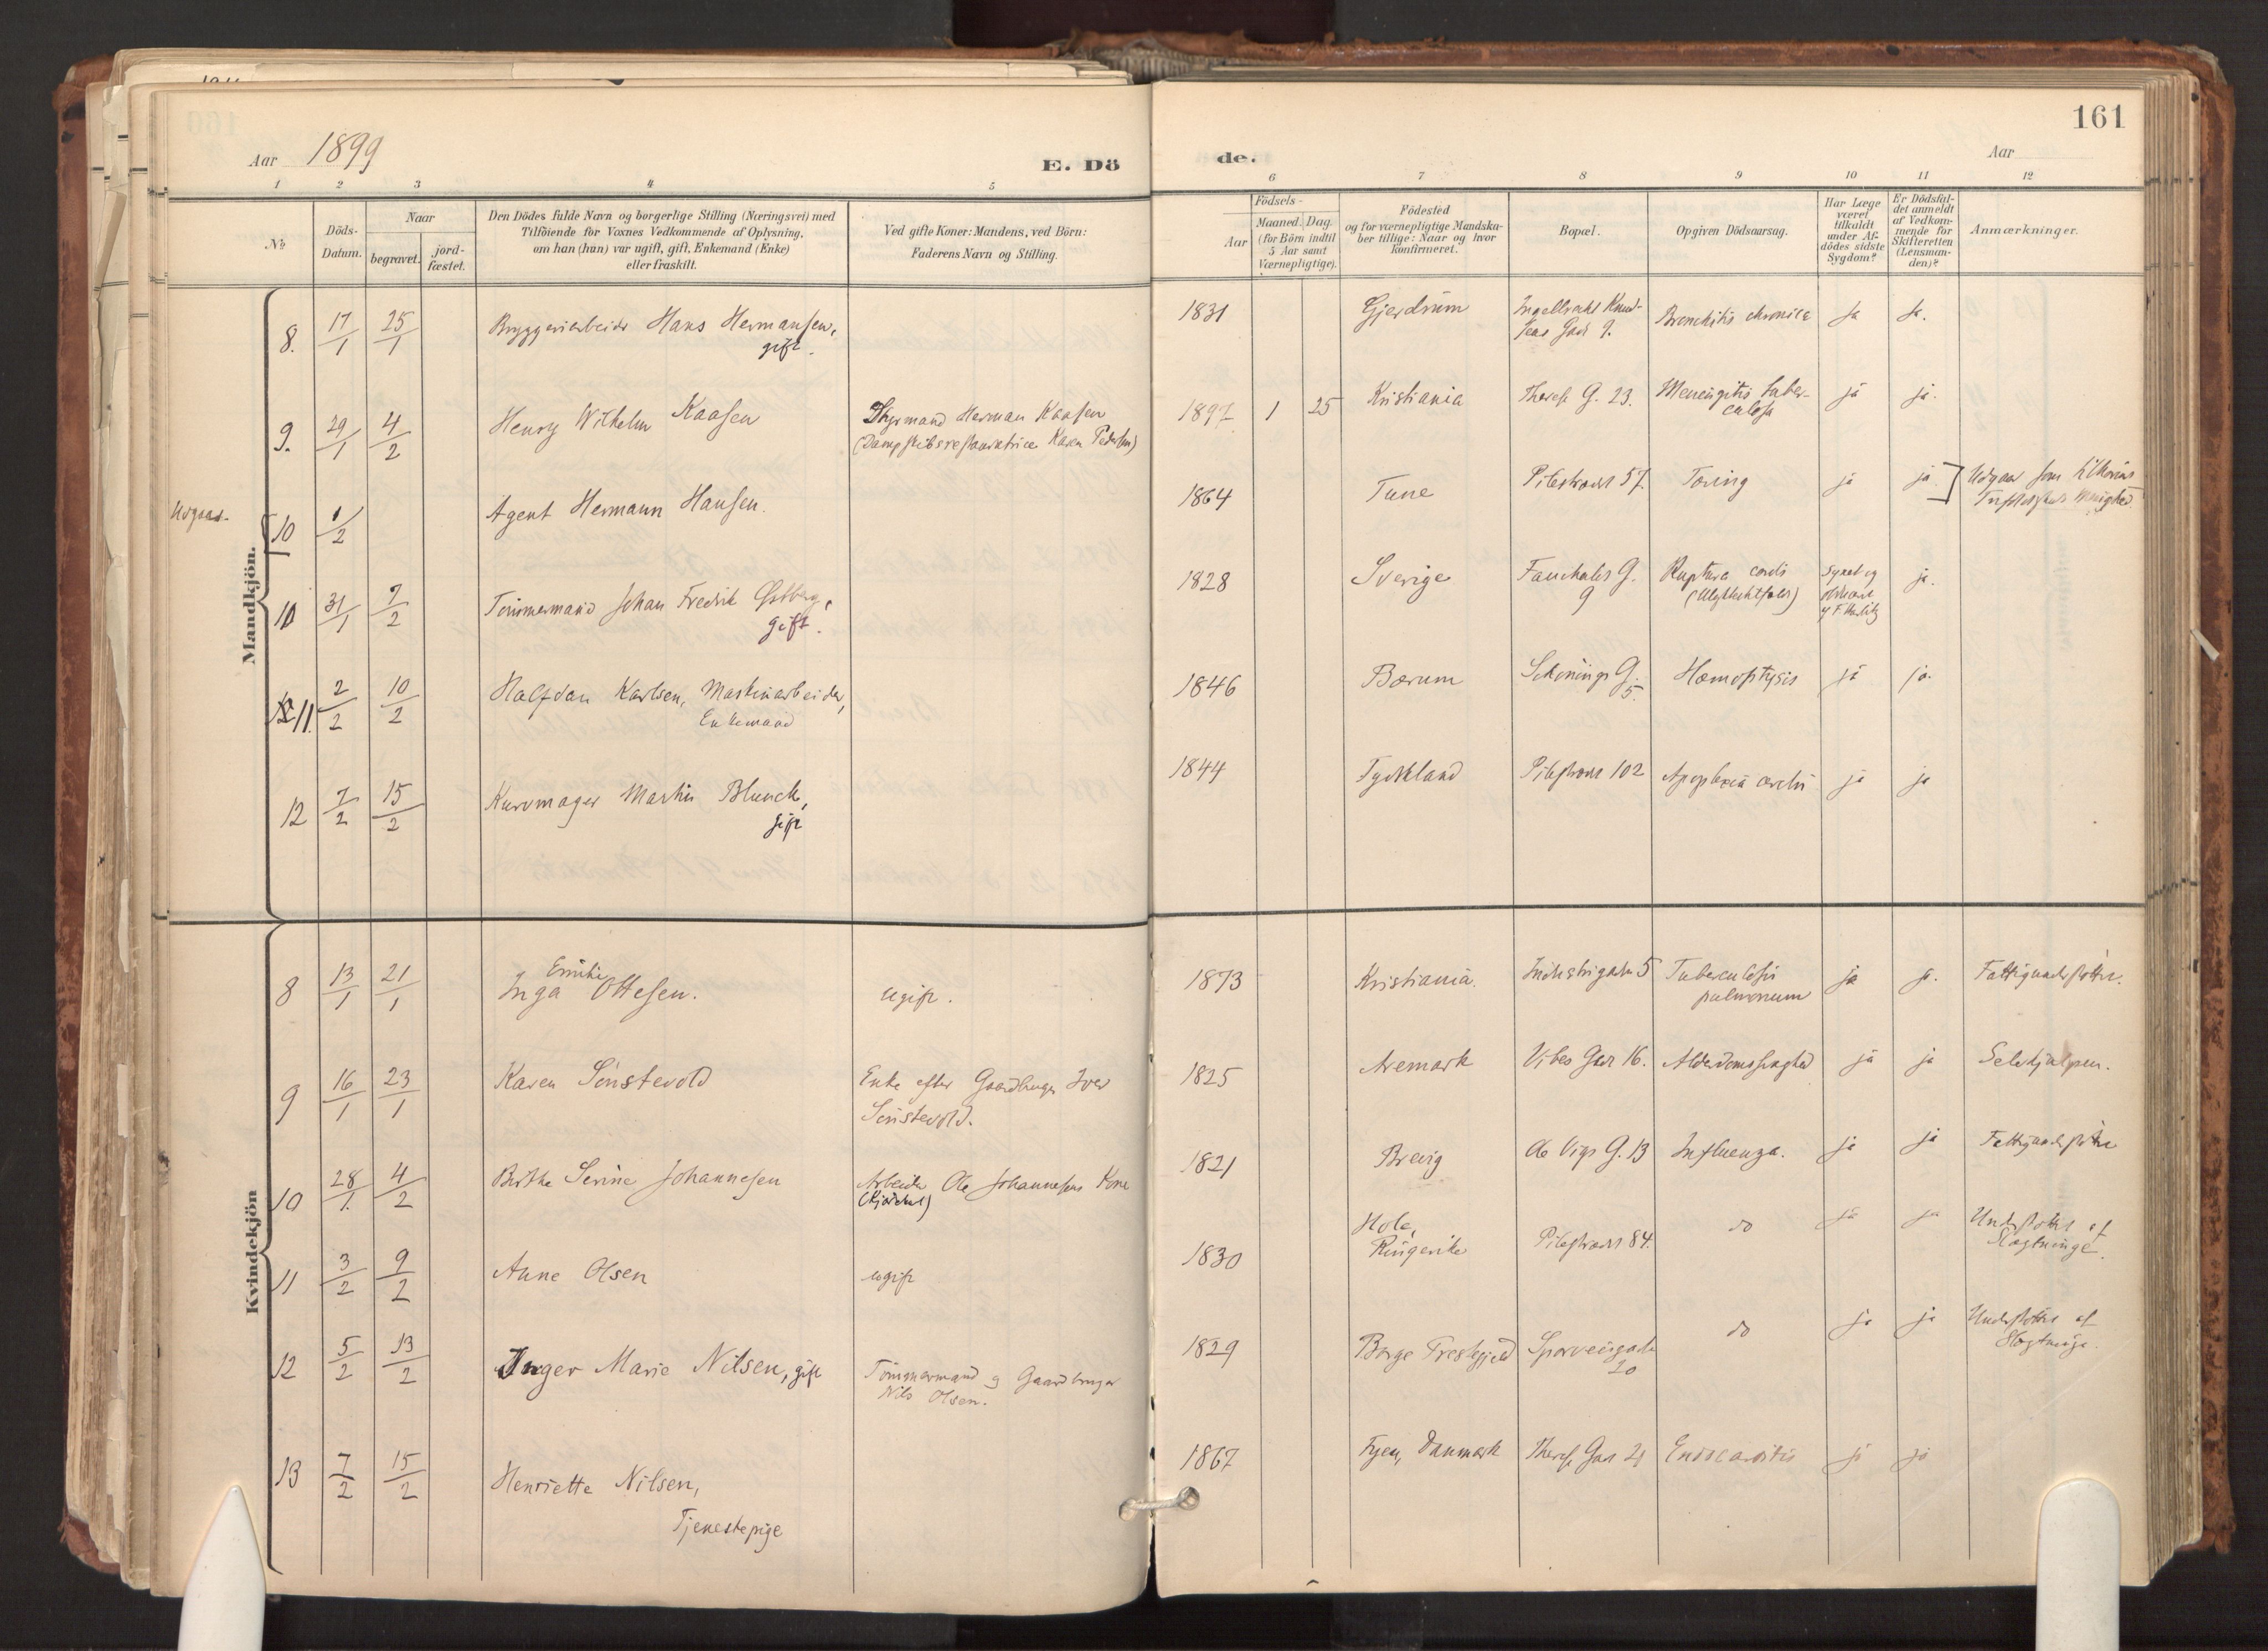 161
Aar 1899
E. Dö
de.
Aar
1 2 3 4 5 6 7 8 9 10 11 12
№
Döds-
Datum.
Naar
begravet.
jord-
fæstet.
Den Dödes fulde Navn og borgerlige Stilling (Næringsvei) med
Tilföiende for Voxnes Vedkommende af Oplysning,
om han (hun) var ugift, gift, Enkemand (Enke)
eller fraskilt.
Ved gifte Koner: Mandens, ved Börn:
Faderens Navn og Stilling.
Födsels-
Aar
Maaned. Dag.
(for Börn indtil
5 Aar samt
Værnepligtige).
Födested
og for værnepligtige Mandska-
ber tillige: Naar og hvor
konfirmeret.
Bopæl.
Opgiven Dödsaarsag.
Har Læge
været
tilkaldt
under Af-
dödes sidste
Sygdom?
Er Dödsfal-
det anmeldt
af Vedkom-
mende for
Skifteretten
(Lensman-
den)?
Anmærkninger.
Mandkjön.
8. 17/1 25/1 Bryggeriarbeider Hans Hermansen,
gift.
1831 Gjerdrum Ingelbrecht Knud-
sens Gade 9. Bronchitis chronica Ja Ja.
9. 29/1 4/2 Henry Wilhelm Kaasen
Styrmand Herman Kaasen
(Dampskibsrestauratrice Karen Pedersen)
1897 1 25 Kristiania Theres G. 23. Meningitis tuber-
culosa ja ja.
Udgaar
10 1/2 Agent Hermann Hansen.
1864 Tune Pilestrædet 57. Tæring ja ja Udgaar som
10 31/1 7/2 Tömmermand Johan Fredrik Østberg,
gift.
1828 Sverige Fauchalds G.
9 Ruptura cordis
Synet og
ja.
11. 2/2 10/2 Halfdan Karlsen, Maskinarbeider,
Enkemand
1846 Bærum Schönings G.
5. Hæmoptysis ja ja.
12 7/2 15/2 Kurvmager Martin Blunck,
gift
1844 Tyskland Pilestrædet 102 Apoplexia cerebri ja ja
Kvindekjön
8 13/1 21/1 Inga Emilie Ottesen.
ugift.
1873 Kristiania. Industrigaden 5 Tuberculosis
pulmonum ja ja. Fattigunderstöttet.
9 16/1 23/1 Karen Sönstevold
Enke efter Gaardbruger Iver
Sönstevold.
1825 Aremark Vibes Gade 16. Alderdomssvaghed ja ja Selvhjulpen.
10 28/1 4/2 Birthe Serine Johannesen
Arbeider Ole Johannesens Kone
1821 Brevig Ole Vigs G. 13 Influenza. ja ja Fattigunderstöttet
11 3/2 9/2 Anne Olsen
ugift
1830 Hole,
Ringerike Pilestrædet 84. do ja ja Understöttet af
Slægtninge.
12 5/2 13/2 Inger Marie Nilsen, gift
Tömmermand og Gaardbruger
Nils Olsen.
1829 Borge Præstegjeld Sporveisgaden
20 do ja ja Understöttet af
Slægtninge.
13 7/2 15/2 Henriette Nilsen,
Tjenestepige
1867 Fyen, Danmark Theres Gade 21 Endocarditis ja ja